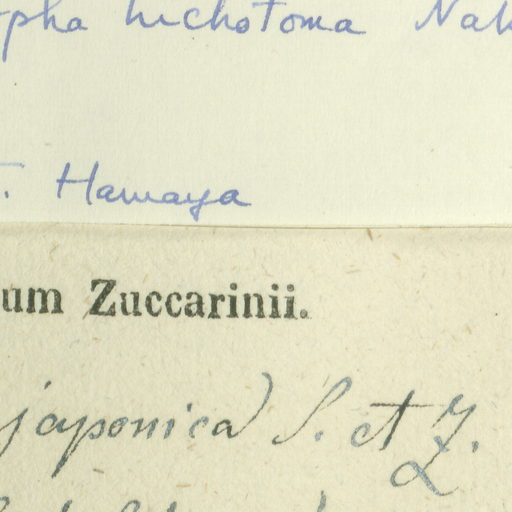 pha trichotoma Nak
T. Hamaya
um Zuccarinii.
japonica S. et Z.